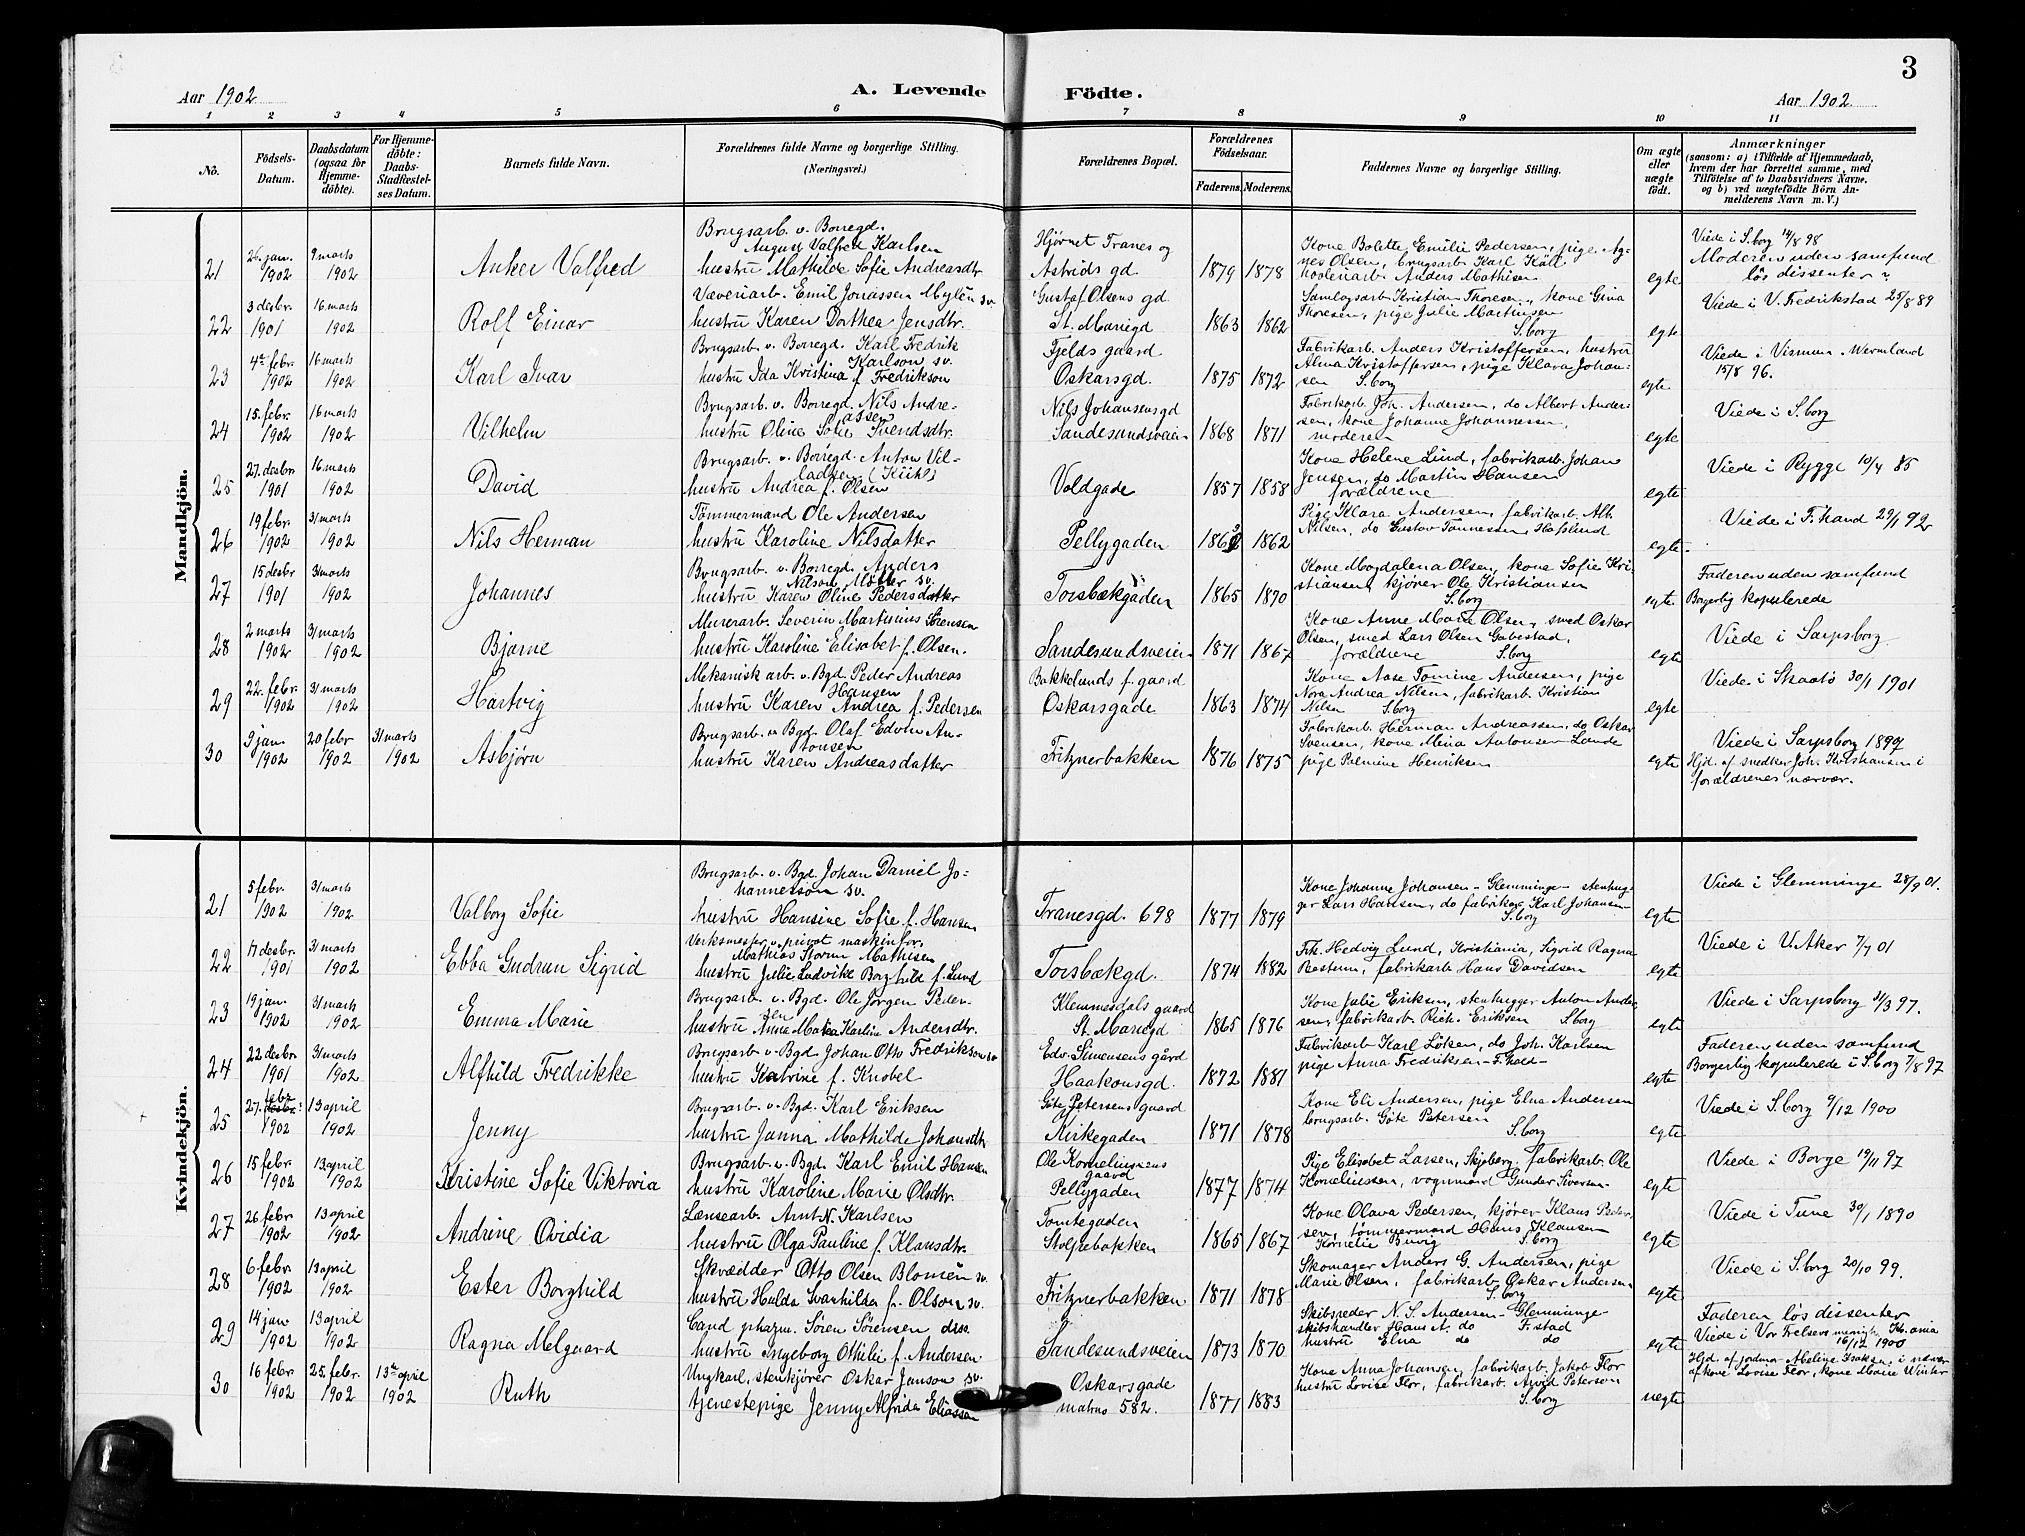 3
Aar 1902
A. Levende
Födte.
Aar 1902
1 2 3 4 5 6 7 8 9 10 11
No.
Födsels-
Datum.
Daabsdatum
(ogsaa för
Hjemme-
döbte).
For Hjemme-
döbte:
Daabs-
Stadfæstel-
ses Datum.
Barnets fulde Navn.
Forældrenes fulde Navne og borgerlige Stilling.
(Næringsvei.)
Forældrenes Bopæl.
Forældrenes
Födselsaar.
Faderens. Moderens.
Faddernes Navne og borgerlige Stilling.
Om ægte
eller
uægte
födt.
Anmærkninger
(saasom: a) i Tilfælde af Hjemmedaab,
hvem der har forrettet samme, med
Tilföielse af to Daabsvidners Navne.
og b) ved uægtefödte Börn An-
melderens Navn m. V.)
Mandkjön.
21
26. jan. 1902
9 marts 1902
Anker Valfred
Brugsarb. v. Borregd.
August Valfred Karlsen
hustru Mathilde Sofie Andreasdtr
Hjørnet Tranes og
Astrids gd.
1879 1878
Kone Bolette Emilie Pedersen, pige Ag-
nes Olsen, brugsarb. Karl Käll
Anders Mathisen
egte
Viede i S.borg 14/8 98
Moderen uden samfund
løs dissenter ?
22
3 desbr. 1901
16 marts 1902
Rolf Einar
Væveriarb. Emil Jonassen Mylén sv.
hustru Karen Dorthea Jensdtr.
Gustaf Olsens gd.
St. Mariegd
1863 1862
Kristian Thoresen, kone Gina
Thoresen, pige Julie Martinsen
S.borg
egte
Viede i V. Fredrikstad 25/8 89
23
4de febr. 1902
16 marts 1902
Karl Ivar
Brugsarb. v. Borregd. Karl Fredrik
Karlson sv.
hustru Ida Kristina f. Fredrikson
Fjelds gaard
Oskarsgd.
1875 1872
Fabrikarb. Anders Kristoffersen, hustru
Alma Kristoffersen, pige Klara Johan-
sen S.borg
egte
Viede i Vermland
15/8 96.
24
15. febr. 1902
16 marts 1902
Vilhelm
Brugsarb. v. Borregd. Nils Andre-
assen
hustru Oline Sofie Svendsdtr.
Nils Johansensgd
Sandesundsveien
1868 1871
Fabrikarb. Joh. Andersen, do Albert Ander-
sen, kone Johanne Johannessen,
moderen
egte
Viede i S.borg
25
27. desbr 1901
16 marts 1902
David
Brugsarb. v. Borregd. Anton Vil-
ladsen (Kühl)
hustru Andrea f. Olsen
Voldgade
1857 1858
Kone Helene Lund, fabrikarb. Johan
Jensen, do Martin Hansen
forældrene
egte
Viede i Rygge 10/4 85
26
19 febr. 1902
31 marts 1902
Nils Herman
Tömmermand Ole Andersen
hustru Karoline Nilsdatter
Pellygaden
1862
Pige Klara Andersen, fabrikarb. Alb.
Nilsen, do Gustav Tonnesen, Hafslund
egte
Viede i F.hand 29/1 92
27
15 desbr 1901
31 marts 1902
Johannes
Brugsarb. v. Borregd. Anders
Nilson Möller sv.
hustru Karen Oline Pedersdatter
Torsbækgaden
1865 1870
Kone Magdalena Olsen, kone Sofie Kri-
stiansen, kjører Ole Kristiansen
S.borg
egte
Faderen uden samfund
Borgerlig kopulerede
28
2 marts 1902
31 marts 1902
Bjarne
Murerarb. Severin Martinius Sørensen
hustru Karoline Elisabet f. Olsen.
Sandesundsveien
1871 1867
Kone Anne Marie Olsen, smed Oskar
Olsen, smed Lars Olsen Gabestad,
forældrene S.borg
egte
Viede i Sarpsborg
29
22. febr. 1902
31 marts 1902
Hartvig
Mekanisk arb. v. Bgd. Peder Andreas
Hansen
hustru Karen Andrea f. Pedersen
Bakkelunds f. gaard
Oskarsgade
1863 1874
Kone Aase Tomine Andersen, pige
Nora Andrea Nilsen, fabrikarb. Kristian
Nilsen S.borg
egte
Viede i Skaatö 30/1 1901
30
9 jan. 1902
20 febr 1902
31 marts 1902
Asbjørn
Brugsarb. v. Bgd. Olaf Edvin An-
tonsen
hustru Karen Andreasdatter
Fritznerbakken
1876 1875
Fabrikarb. Herman Andreassen, do Oskar
Svensen, kone Mina Antonsen Lande
pige Palmine Henriksen
egte
Viede i Sarpsborg 1897
Hjd. af snedker Joh. Kristiansen i
forældrenes nærvær.
Kvindekjön.
21
5 febr. 1902
31 marts 1902
Valborg Sofie
Brugsarb. v. Bgd. Johan Daniel Jo-
hannesson sv.
hustru Hansine Sofie f. Hansen
Tranesgd. 698
1877 1879
Kone Johanne Johansen - Glemminge - stenhug-
ger Lars Hansen, do fabrikarb Karl Johansen
S.borg
egte
Viede i Glemminge 28/9 01.
22
17 desbr. 1901
31 marts 1902
Ebba Gudrun Sigrid
Verksmester v. privat maskinfor.
Mathias Storm Mathisen
hustru Julie Ludvikke Borghild f. Lund
Torsbækgd.
1874 1882
Frk. Hedvig Lund, Kristiania, Sigrid Ragna
Rostum, fabrikarb Hans Davidsen
egte
Viede i V. Aker 7/7 01
23
19 jan. 1902
31 marts 1902
Emma Marie
Brugsarb. v. Bgd. Ole Jørgen Peder-
sen
hustru Anna Matea Karline Andersdtr.
Klemmesdals gaard
St. Mariegd
1865 1876
Kone Julie Eriksen, stenhugger Anton Ander-
sen, fabrikarb. Rich. Eriksen S.borg
egte
Viede i Sarpsborg 31/3 97.
24
22 desbr. 1901
31 marts 1902
Alfhild Fredrikke
Brugsarb. v. Bgd. Johan Otto Fredrikson sv
hustru Katrine f. Knobel
Edv. Simensens gård
Haakonsgd.
1872 1881
Fabrikarb Karl Löken, do Joh. Karlsen
pige Anna Fredriksen - F.hald -
egte
Faderen uden samfund
Borgerlig kopulerede i S.borg 7/8 97
25
27. febr 1902
13 april 1902
Jenny
Brugsarb. v. Bgd. Karl Eriksen
hustru Janna Mathilde Johansdtr
Göte Petersens gaard
Kirkegaden
1871 1878
Kone Eli Andersen, pige Elna Andersen
brugsarb. Göte Petersen
S.borg
egte
Viede i S.borg 9/12 1900
26
15 febr. 1902
13 april 1902
Kristine Sofie Viktoria
Brugsarb. v. Bgd. Karl Emil Hansen
hustru Karoline Marie Olsdtr.
Ole Korneliussens
gaard
Pellygaden
1877 1874
Pige Elisabet Larsen, Skjeberg, fabrikarb. Ole
Korneliussen, vognmand Gunder Siversen
egte
Viede i Borge 19/11 97
27
26 febr 1902
13 april 1902
Andrine Ovidia
Lænsearb. Arnt N. Karlsen
hustru Olga Pauline f. Klausdtr.
Tomtegaden
Stolpebakken
1865 1867
Kone Olava Pedersen, kjører Klaus Peder-
sen, tømmermand Hans Klausen
Kornelie Buvig S.borg
egte
Viede i Tune 30/1 1890
28
6 febr. 1902
13 april 1902
Ester Borghild
Skrædder Otto Olsen Blomén sv.
hustru Hulda Svanhilda f. Olson sv.
Fritznerbakken
1871 1878
Skomager Anders G. Andersen, pige
Marie Olsen, fabrikarb. Oskar Andersen
S.borg
egte
Viede i S.borg 20/10 99.
29
14 jan 1902
13 april 1902
Ragna Melgaard
Cand. pharm. Sören Sörensen diss.
hustru Ingeborg Othilie f. Andersen
Sandesundsveien
1873 1870
Skibsreder N. S. Andersen - Glemminge -
skibshandler Hans A. do F.stad
hustru Elna do do
egte
Faderen løs dissenter
Viede i Vor Frelsers menigh. Kr.ania
16/12 1900
30
16 febr 1902
25. febr. 1902
13de april 1902
Ruth
Ungkarl, stenkjører Oskar Janson sv.
tjenestepige Jenny Alfrida Eliasson
Oskarsgade
matrno 582.
1877 1883
Kone Anna Johansen, fabrikarb. Jakob Flor
hustru Lovise Flor, fabrikarb. Arvid Peterson
S.borg
uegte
Hjd. af jordmor Abeline Isaksen, i nærvær
af kone Lovise Flor, kone Marie Winter